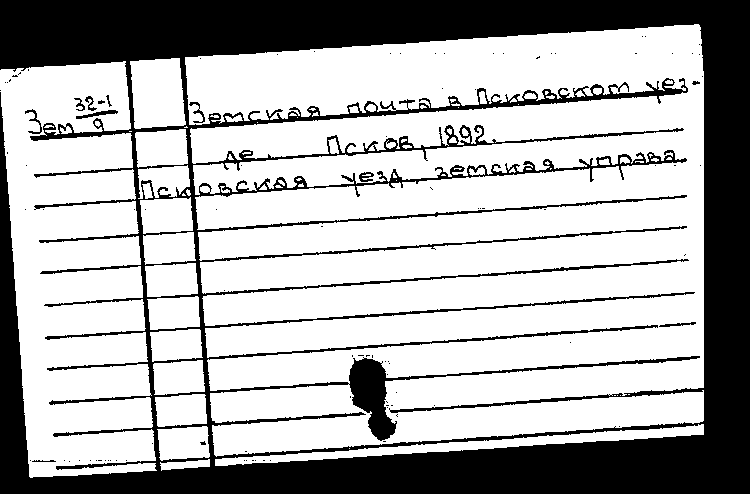 Зем 32-1/9 Земская почта в Псковском уез-
де. Псков, 1892.
Псковская уезд. земская управа